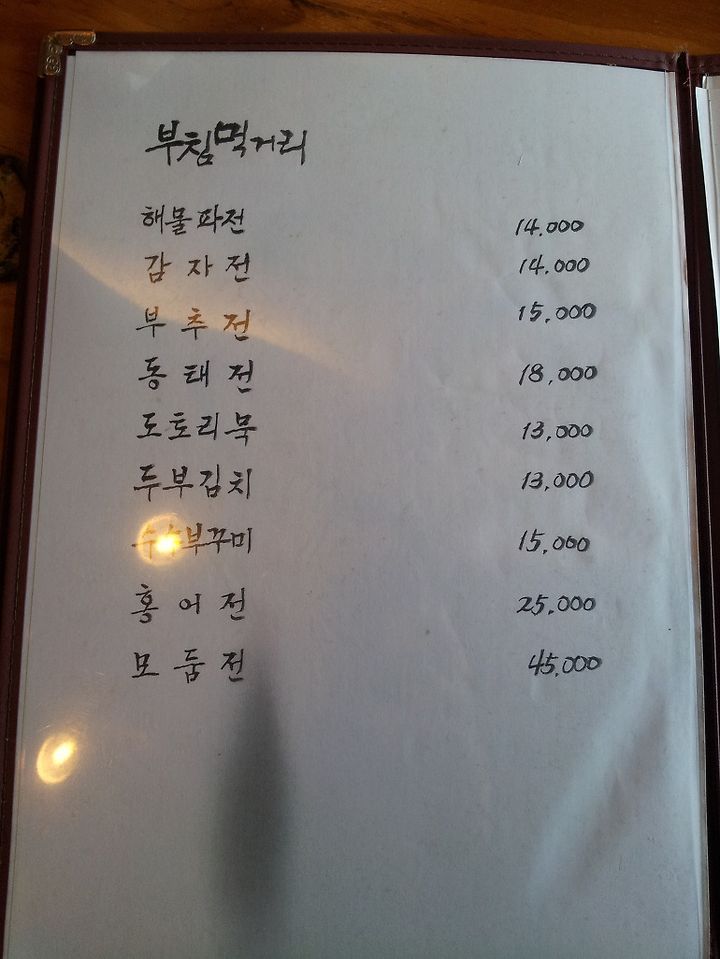 부침먹거리
해물파전 14.000
감자전 14.000
부추전 15,000
동태전 18,000
도토리묵 13,000
두부김치 13,000
수수부꾸미 15,000
홍어전 25,000
모둠전 45,000